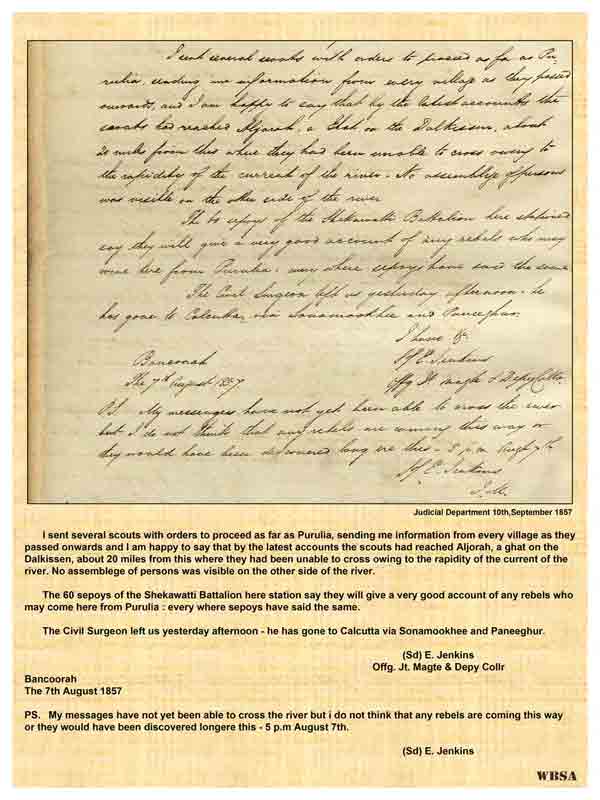 I sent several scouts with orders to proceed as far as Pu-
rulia, sending me information from every village as they passed
onwards, and I am happy to say that by the latest accounts the
scouts had reached Aljorah, a Ghat on the Dalkissen, about
20 miles from this where they had been unable to cross owing to
the rapidity of the current of the river. No assemblage of persons
was visible on the other side of the river
The 60 sepoys of the Shekawatti Battalion here stationed
say they will give a very good account of any rebels who may
come here from Purulia. every where sepoys have said the same
The Civil Surgeon left us yesterday afternoon. he
has gone to Calcutta via Sonamookhee and Paneeghur.
I have &c
E. Jenkins
Offg Jt. Magte & Depy Collr.
Bancoorah
The 7th August 1857.
PS. My messengers have not yet been able to cross the river
but I do not think that any rebels are coming this way or
they would have been discovered long ere this - 5 p.m. Augt 7th.
E. Jenkins
J.M.
Judicial Department 10th,September 1857
I sent several scouts with orders to proceed as far as Purulia, sending me information from every village as they
passed onwards and I am happy to say that by the latest accounts the scouts had reached Aljorah, a ghat on the
Dalkissen, about 20 miles from this where they had been unable to cross owing to the rapidity of the current of the
river. No assemblege of persons was visible on the other side of the river.
The 60 sepoys of the Shekawatti Battalion here station say they will give a very good account of any rebels who
may come here from Purulia : every where sepoys have said the same.
The Civil Surgeon left us yesterday afternoon - he has gone to Calcutta via Sonamookhee and Paneeghur.
(Sd) E. Jenkins
Offg. Jt. Magte & Depy Collr
Bancoorah
The 7th August 1857
PS. My messages have not yet been able to cross the river but i do not think that any rebels are coming this way
or they would have been discovered longere this - 5 p.m August 7th.
(Sd) E. Jenkins
WBSA